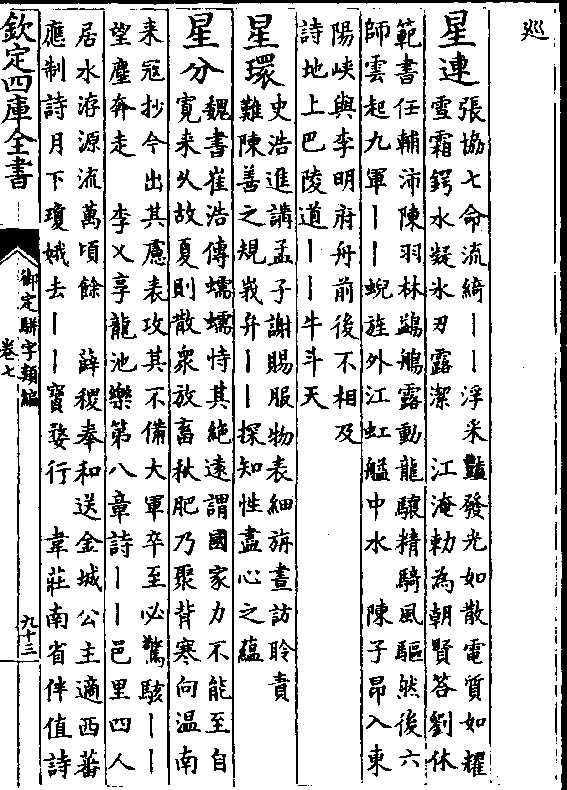 廵
星連 張協七命流綺丨丨浮采豔發光如散電質如耀
雪霜鍔水凝氷刃露潔 江淹敕為朝賢答劉休
範書任輔沛陳羽林鷁鵃露動龍驤精騎風驅然後六
師雲起九軍丨丨蜺旌外江虹艫中水 陳子昂入東
陽峽與李明府舟前後不相及
詩地上巴陵道丨丨牛斗天
星環 史浩進講孟子謝賜服物表細旃晝訪聆責
難陳善之規峩弁丨丨探知性盡心之藴
星分 魏書崔浩傳蠕蠕恃其絶遠謂國家力不能至自
寛来久故夏則散衆放畜秋肥乃聚背寒向温南
来冦抄今出其慮表攻其不備大軍卒至必驚駭丨丨
望塵奔走 李乂享龍池樂第八章詩丨丨邑里四人
居水洊源流萬頃餘 薛稷奉和送金城公主適西蕃
應制詩月下瓊娥去丨丨寳婺行 韋莊南省伴值詩
欽定四庫全書
御定駢字類編
卷七
九十三